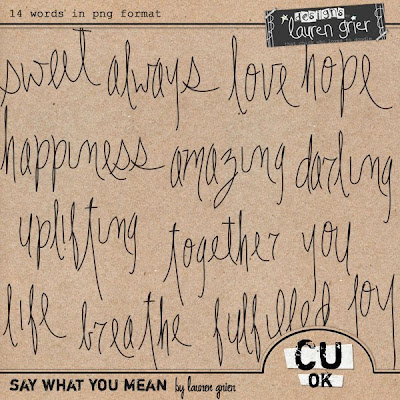 14 words in png format
designs
lauren grier
sweet always love hope
happiness amazing darling
uplifting together you
life breathe fulfilled joy
CU
OK
SAY WHAT YOU MEAN by lauren grier